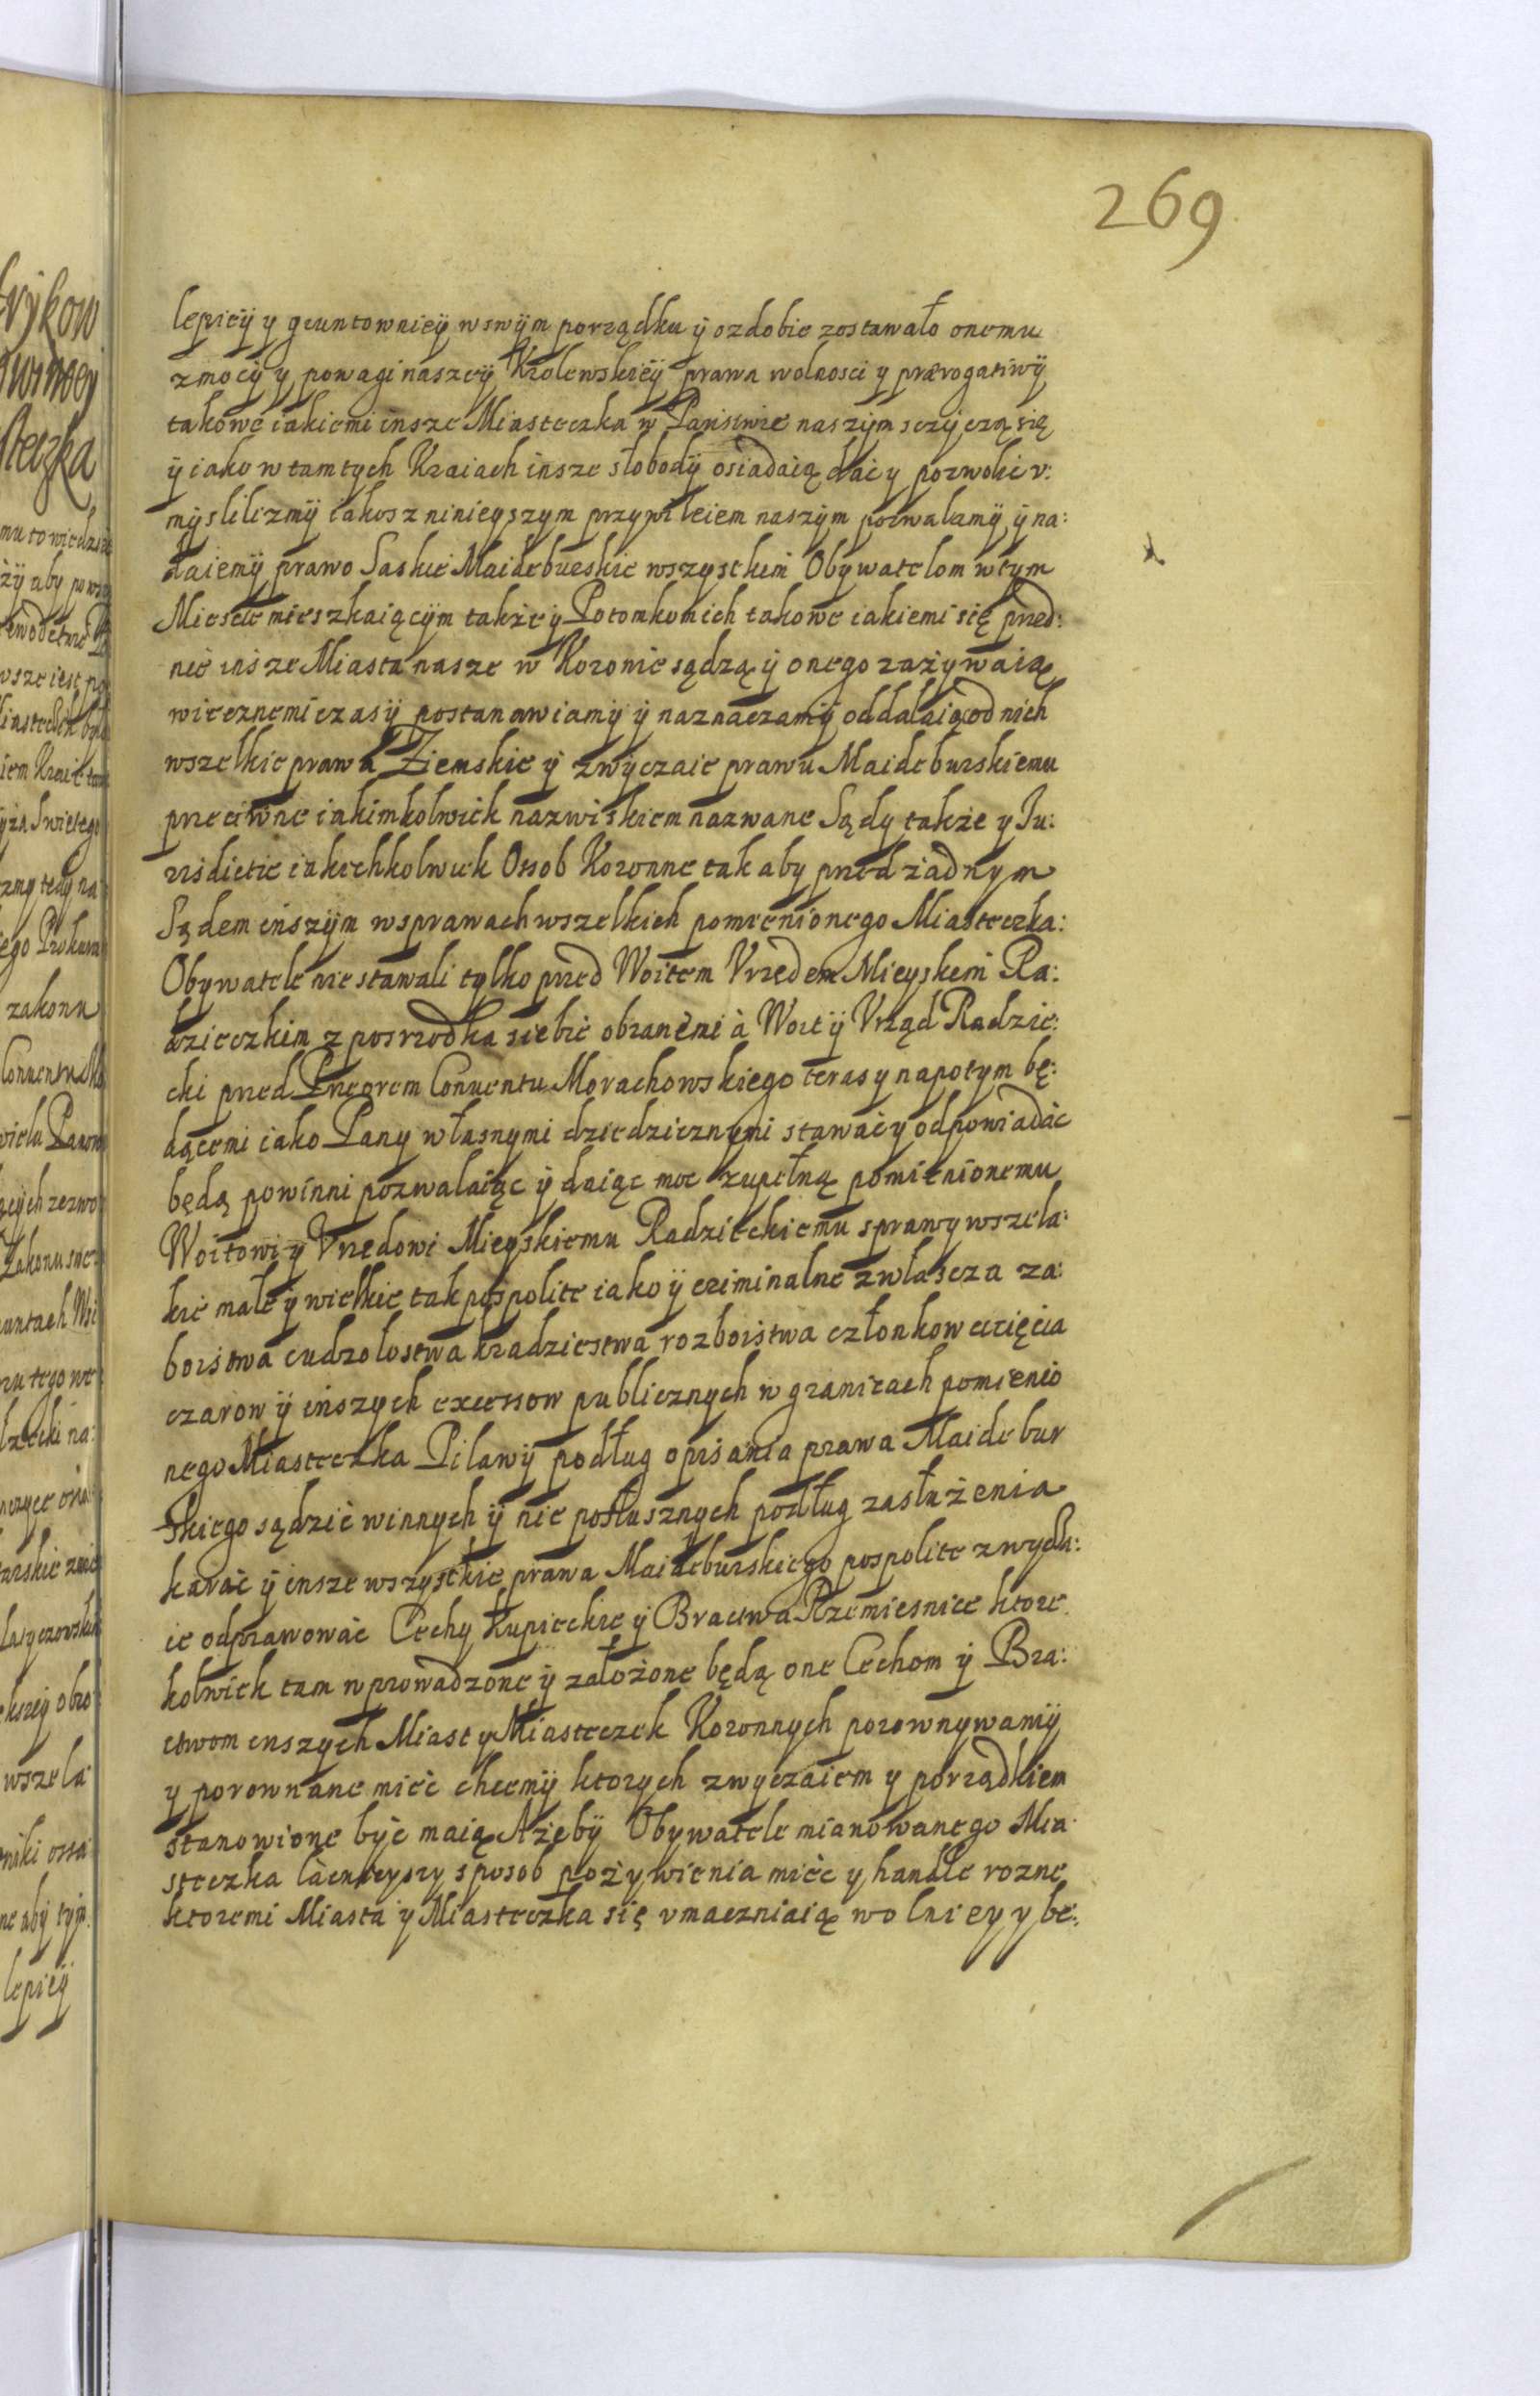 269
lepieÿ y gruntownieÿ w swÿm porządku ÿ ozdobie zostawało onemu
z mocÿ y powagi naszeÿ Krolewskieÿ prawa wolnosci y prærogatiwÿ
takowe iakiemi insze Miasteczka w Panstwie naszÿm sczÿczą się
ÿ iako w tamtych Kraiach insze słobodÿ osiadaią dać y pozwolić v:
mÿslilizmÿ iakosz ninieyszym przywileiem naszÿm pozwalamÿ ÿ na:
daiemÿ prawo Saskie Maideburskie wszystkim Obywatelom w tym
Miescie mieszkaiącÿm także ÿ Potomkom ich takowe iakiemi się pred:
nie insze Miasta nasze w Koronie sądzą ÿ onego zażywaią
wiecznemi czasÿ postanawiamÿ ÿ naznaczamÿ oddalaiąc od nich
wszelkie prawa Ziemskie ÿ zwÿczaie prawu Maideburskiemu
preciwne iakimkolwiek nazwiskiem nazwane Sądy także y Ju:
risdictie iakichkolwiek Ossob Koronne tak aby pred żadnym
Sądem inszÿm w sprawach wszelkich pomienionego Miasteczka:
Obywatele nie stawali tylko pred Woitem Vrzedem Mieyskim Ra:
dzieczkim z posrzodka siebie obranemi à Woit ÿ Vrząd Radzie:
cki pred Preorem Conuentu Morachowskiego teras y napotym bę:
dącemi iako Pany własnymi dziedzicznymi stawać y odpowiadać
będą powinni pozwalaiąc ÿ daiąc moc zupełną pomienionemu
Woitowi ÿ Vrzedowi Mieyskiemu Radzieckiemu sprawy wszela:
kie małe ÿ wielkie tak pospolite iako ÿ criminalne zwłascza za:
boistwa cudzolostwa kradziestwa rozboistwa członkow ucięcia
czarow ÿ inszych excessow publicznych w granicach pomienio
nego Miasteczka Pilawÿ podług opisania prawa Maidebur
skiego sądzić winnych ÿ nie posłusznych podług zasłużenia
karać ÿ insze wszystkie prawa Maideburskiego pospolite zwycza:
ie odprawować Cechy Kupieckie ÿ Bractwa Rzemiesnice ktore
kolwiek tam wprowadzone ÿ założone będą one Cechom ÿ Bra:
ctwom inszych Miast y Miasteczek Koronnych porownywamÿ
y porownane mieć chcemÿ ktorych zwyczaiem y porządkiem
stanowione być maią Ażebÿ Obywatele mianowanego Mia
steczka lacnieyszy sposob pożywienia mieć y handle rozne
ktoremi Miasta ÿ Miasteczka się vmaczniaią wolniey y be: